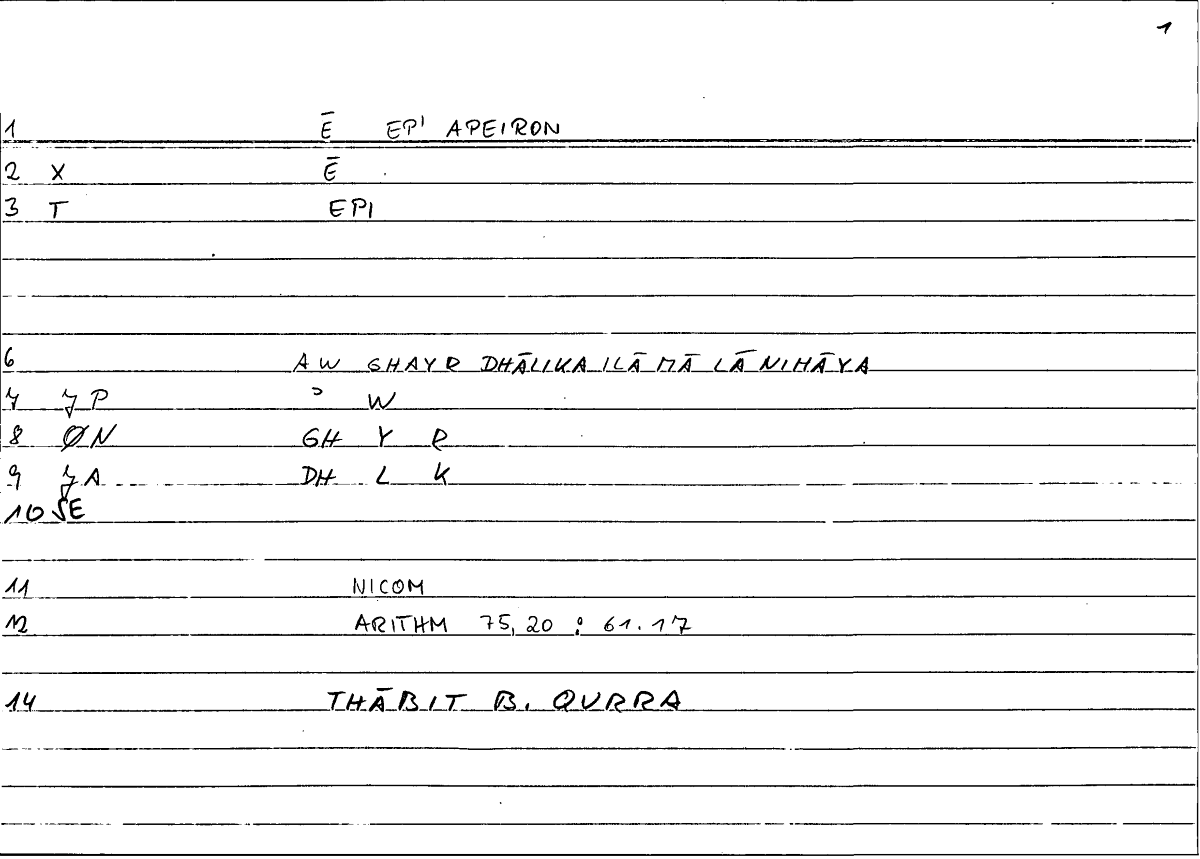 1
1 Ē EPI APEIRON
2 X Ē
3 T EPI
6 AW GHAYR DHĀLIKA ILĀ MĀ LĀ NIHĀYA
7 JP ʾ W
8 ØN GH Y R
9 JA DH L K
10 SE
11 NICOM
12 ARITHM 75,20 : 61.17
14 THĀBIT B. QURRA